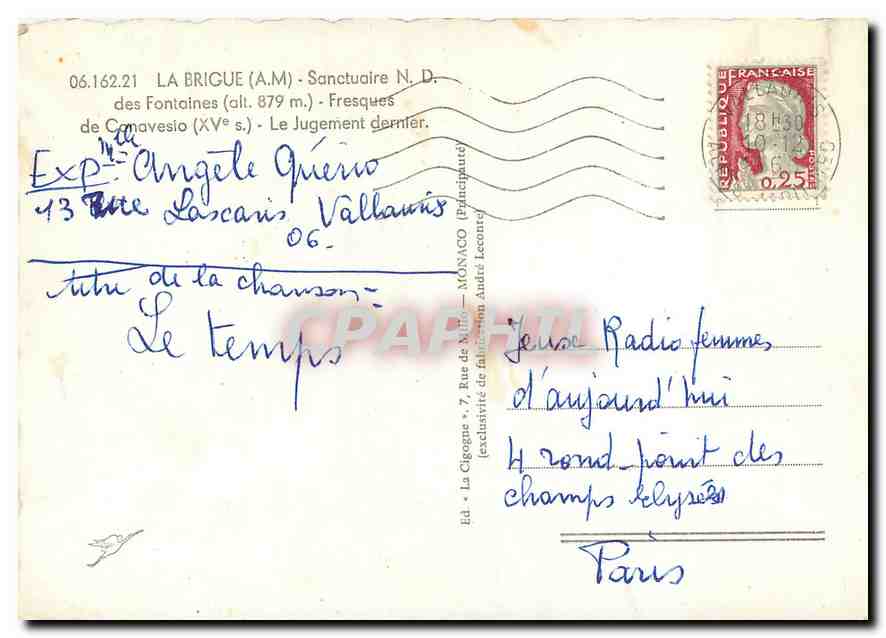 06.162.21 LA BRIGUE (A.M) - Sanctuaire N. D.
des Fontaines (alt. 879 m.) - Fresques
de Canavesio (XVe s.) - Le Jugement dernier.
Exp Mlle Angèle
13 Rue Lascaris Vallauris
06.
titre de la chanson =
Le temps
Ed. « La Cigogne », 7, Rue de Millo — MONACO (Principauté)
(exclusivité de fabrication André Leconte)
RÉPUBLIQUE FRANÇAISE
0,25
VALLAURIS
18 H 30
CPAPHIL
Jeuse Radio femmes
d'aujourd'hui
4 rond-point des
champs Elysées
Paris